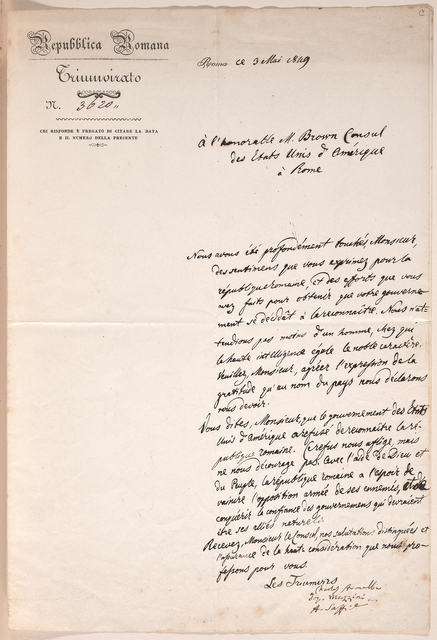 Repubblica Romana
Triumvirato
N. 3620
CHI RISPONDE È PREGATO DI CITARE LA DATA
E IL NUMERO DELLA PRESENTE
Roma ce 3 Mai 1849
à l'honorable M. Brown Consul
des Etats Unis d'Amérique
à Rome
Nous avons été profondément touchés, Monsieur,
des sentimens que vous exprimez pour la
république romaine, et des efforts que vous
avez faits pour obtenir que votre gouverne-
ment se décidât à la reconnaître. Nous n'at-
tendions pas moins d'un homme, chez qui
la haute intelligence égale le noble caractère.
Veuillez, Monsieur, agréer l'expression de la
gratitude qu'au nom du pays nous déclarons
vous devoir.
Vous dites, Monsieur, que le gouvernement des Etats
Unis d'Amérique a refusé de reconnaître la ré-
publique romaine. Ce refus nous afflige, mais
ne nous décourage pas. Avec l'aide de Dieu et
du Peuple, la république romaine a l'espoir de
vaincre l'opposition armée de ses ennemis, et de
conquérir la confiance des gouvernemens qui devraient
être ses alliés naturels.
Recevez, Monsieur le Consul, nos salutations distinguées et
l'assurance de la haute considération que nous pro-
fessons pour vous.
Les Triumvirs
Charles Armellini
Jos. Mazzini
A. Saffi